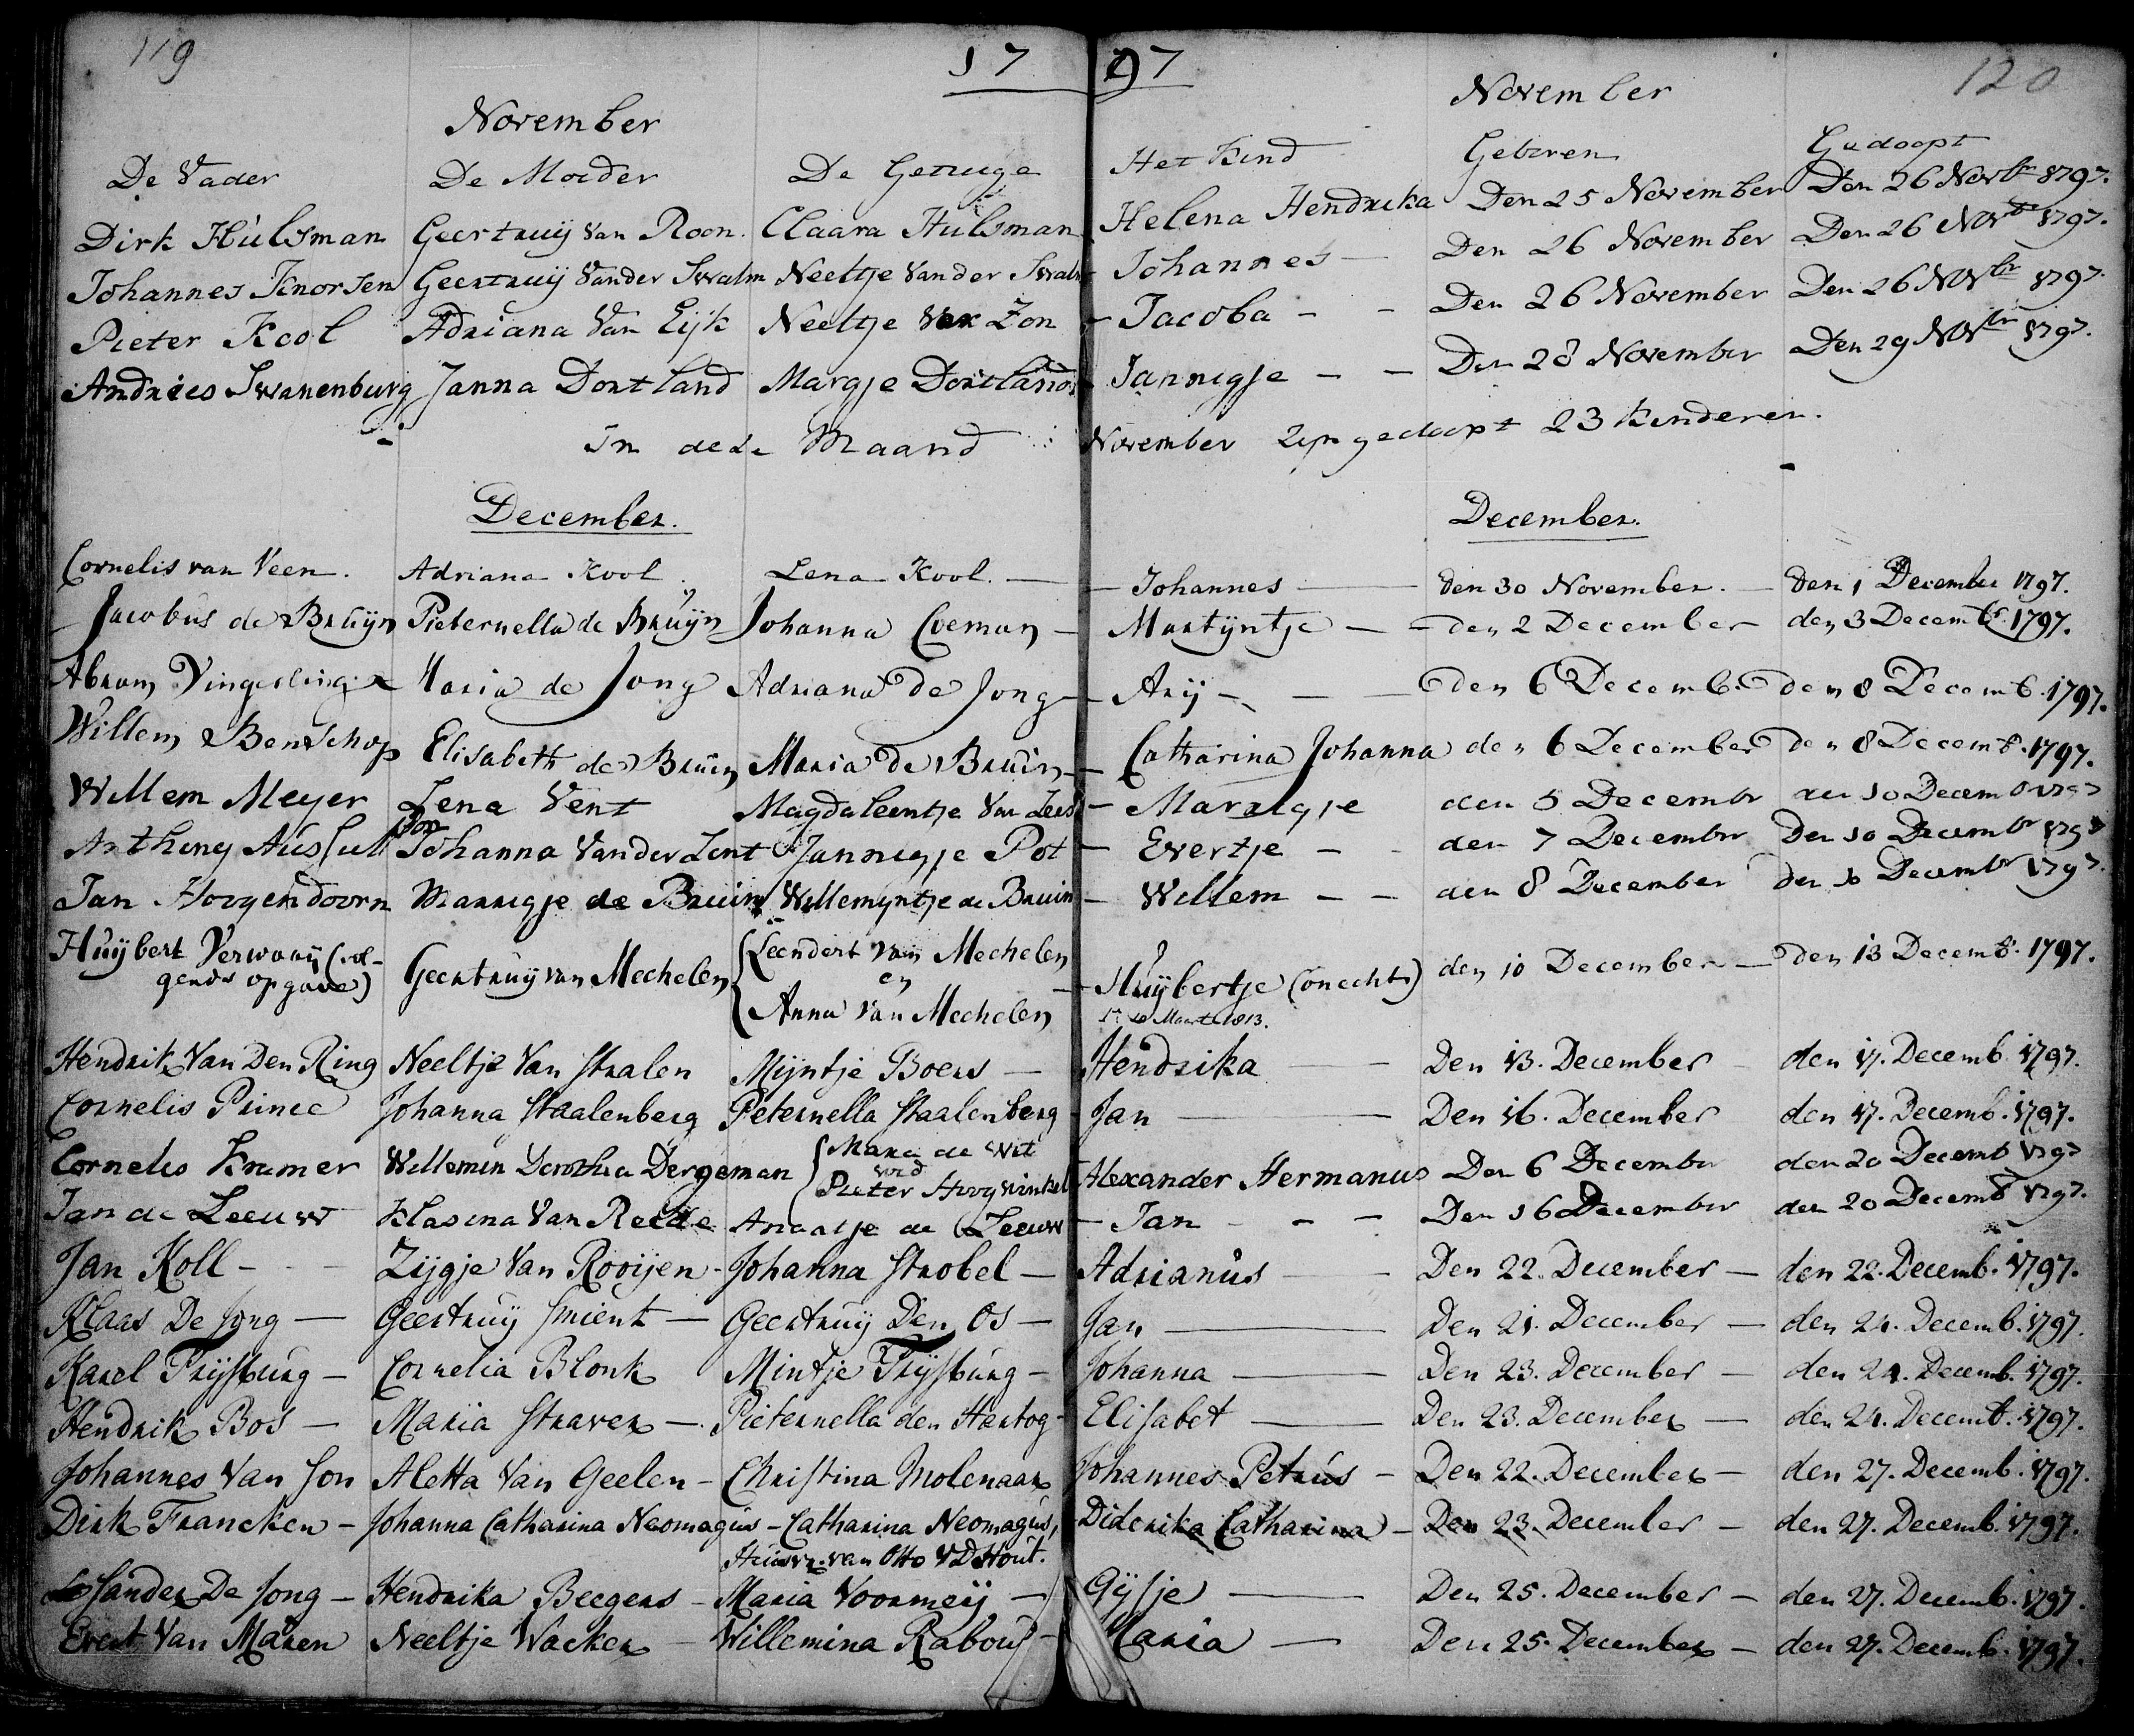 119 17 97 120
November November
De Vader De Moeder De Getuige Het Kind Geboren Gedoopt
Dirk Hulsman Geertruij Van Roon. Claara Hulsman Helena Hendrika Den 25 November Den 26 Novbr 1797.
Johannes Knorsen Geertruij Vander Swalm Neeltje Vander Swalm Johannes — Den 26 November Den 26 Novbr 1797.
Pieter Kool Adriana Van Eijk Neeltje Van Zon - Jacoba - - Den 26 November Den 26 Novbr 1797.
Andries Swanenburg Janna Dortland Margje Dortland - Jannigje - - Den 28 November Den 29 Novbr 1797.
In deze Maand November zijn gedoopt 23 kinderen.
December. December.
Cornelis van Veen. Adriana Kool. Lena Kool. — Johannes — den 30 November. — den 1 December 1797.
Jacobus de Bruijn Pieternella de Bruijn Johanna Coeman — Martijntje — - den 2 December den 3 Decembr. 1797.
Abram Vingerling Maria de Jong Adriana de Jong - Arij - — den 6 Decemb. den 8 Decemb. 1797.
Willem Benschop Elisabeth de Bruin Maria de Bruin - Catharina Johanna den 6 December den 8 Decemb. 1797.
Willem Meyer Lena Vent Magdaleentje Van Lees - Marrigje den 5 Decembr den 10 Decembr 1797
Anthony Johanna Vander Zent Jannigje Pot - Evertje - - den 7 Decembr Den 10 Decembr 1797
Jan Hoogendoorn Marrigje de Bruin Willemyntje de Bruin - Willem - - den 8 December den 10 Decembr 1797.
Huijbert Verwaaij (vol-
gends opgave) Geertruij van Mechelen Leendert van Mechelen
en
Anna van Mechelen - Huijbertje (onecht) den 10 December — den 13 Decemb. 1797.
Maart 1813.
Hendrik Van Den Ring Neeltje Van Stralen Mijntje Boers — Hendrika — Den 13. December — den 17. Decemb. 1797.
Cornelis Prince Johanna Staalenberg Peternella Staalenberg Jan — Den 16. December den 17. Decemb. 1797.
Cornelis Kramer Willemin Dorothea Dergeman Maria de Wit
wed
Pieter Hoogwinkel Alexander Hermanus Den 6 December den 20 Decemb 1797
Jan de Leeuw Klasina Van Reede Anaatje de Leeuw - Jan - - - Den 16 December den 20 Decemb 1797.
Jan Koll - - — Zijgje Van Rooijen - Johanna Strobel — Adrianus — Den 22. December — den 22. Decemb. 1797.
Klaas De Jong — Geertruij Smient — Geertruij Den Os — Jan — Den 21. December — den 24. Decemb. 1797.
Karel Trijsburg - Cornelia Blonk Mintje Trijsburg - Johanna — Den 23. December — den 24. Decemb. 1797.
Hendrik Bos — Maria Straver — Pieternella den Hertog - Elisabet — Den 23. December — den 24. Decemb. 1797.
Johannes Van Son Aletta Van Geelen - Christina Molenaar Johannes Petrus - Den 22. December — den 27. Decemb. 1797.
Dirk Francken - Johanna Catharina Neomagus - Catharina Neomagus, Diderika Catharina - Den 23. December — den 27. Decemb. 1797.
Huisvr. van Otto VD Hout.
Sander De Jong - Hendrika Beegers - Maria Voormeij — Gijsje — Den 25. December — den 27. Decemb. 1797.
Evert Van Maren Neeltje Wacker - Willemina Rabous - Maria — Den 25. December — den 27. Decemb. 1797.